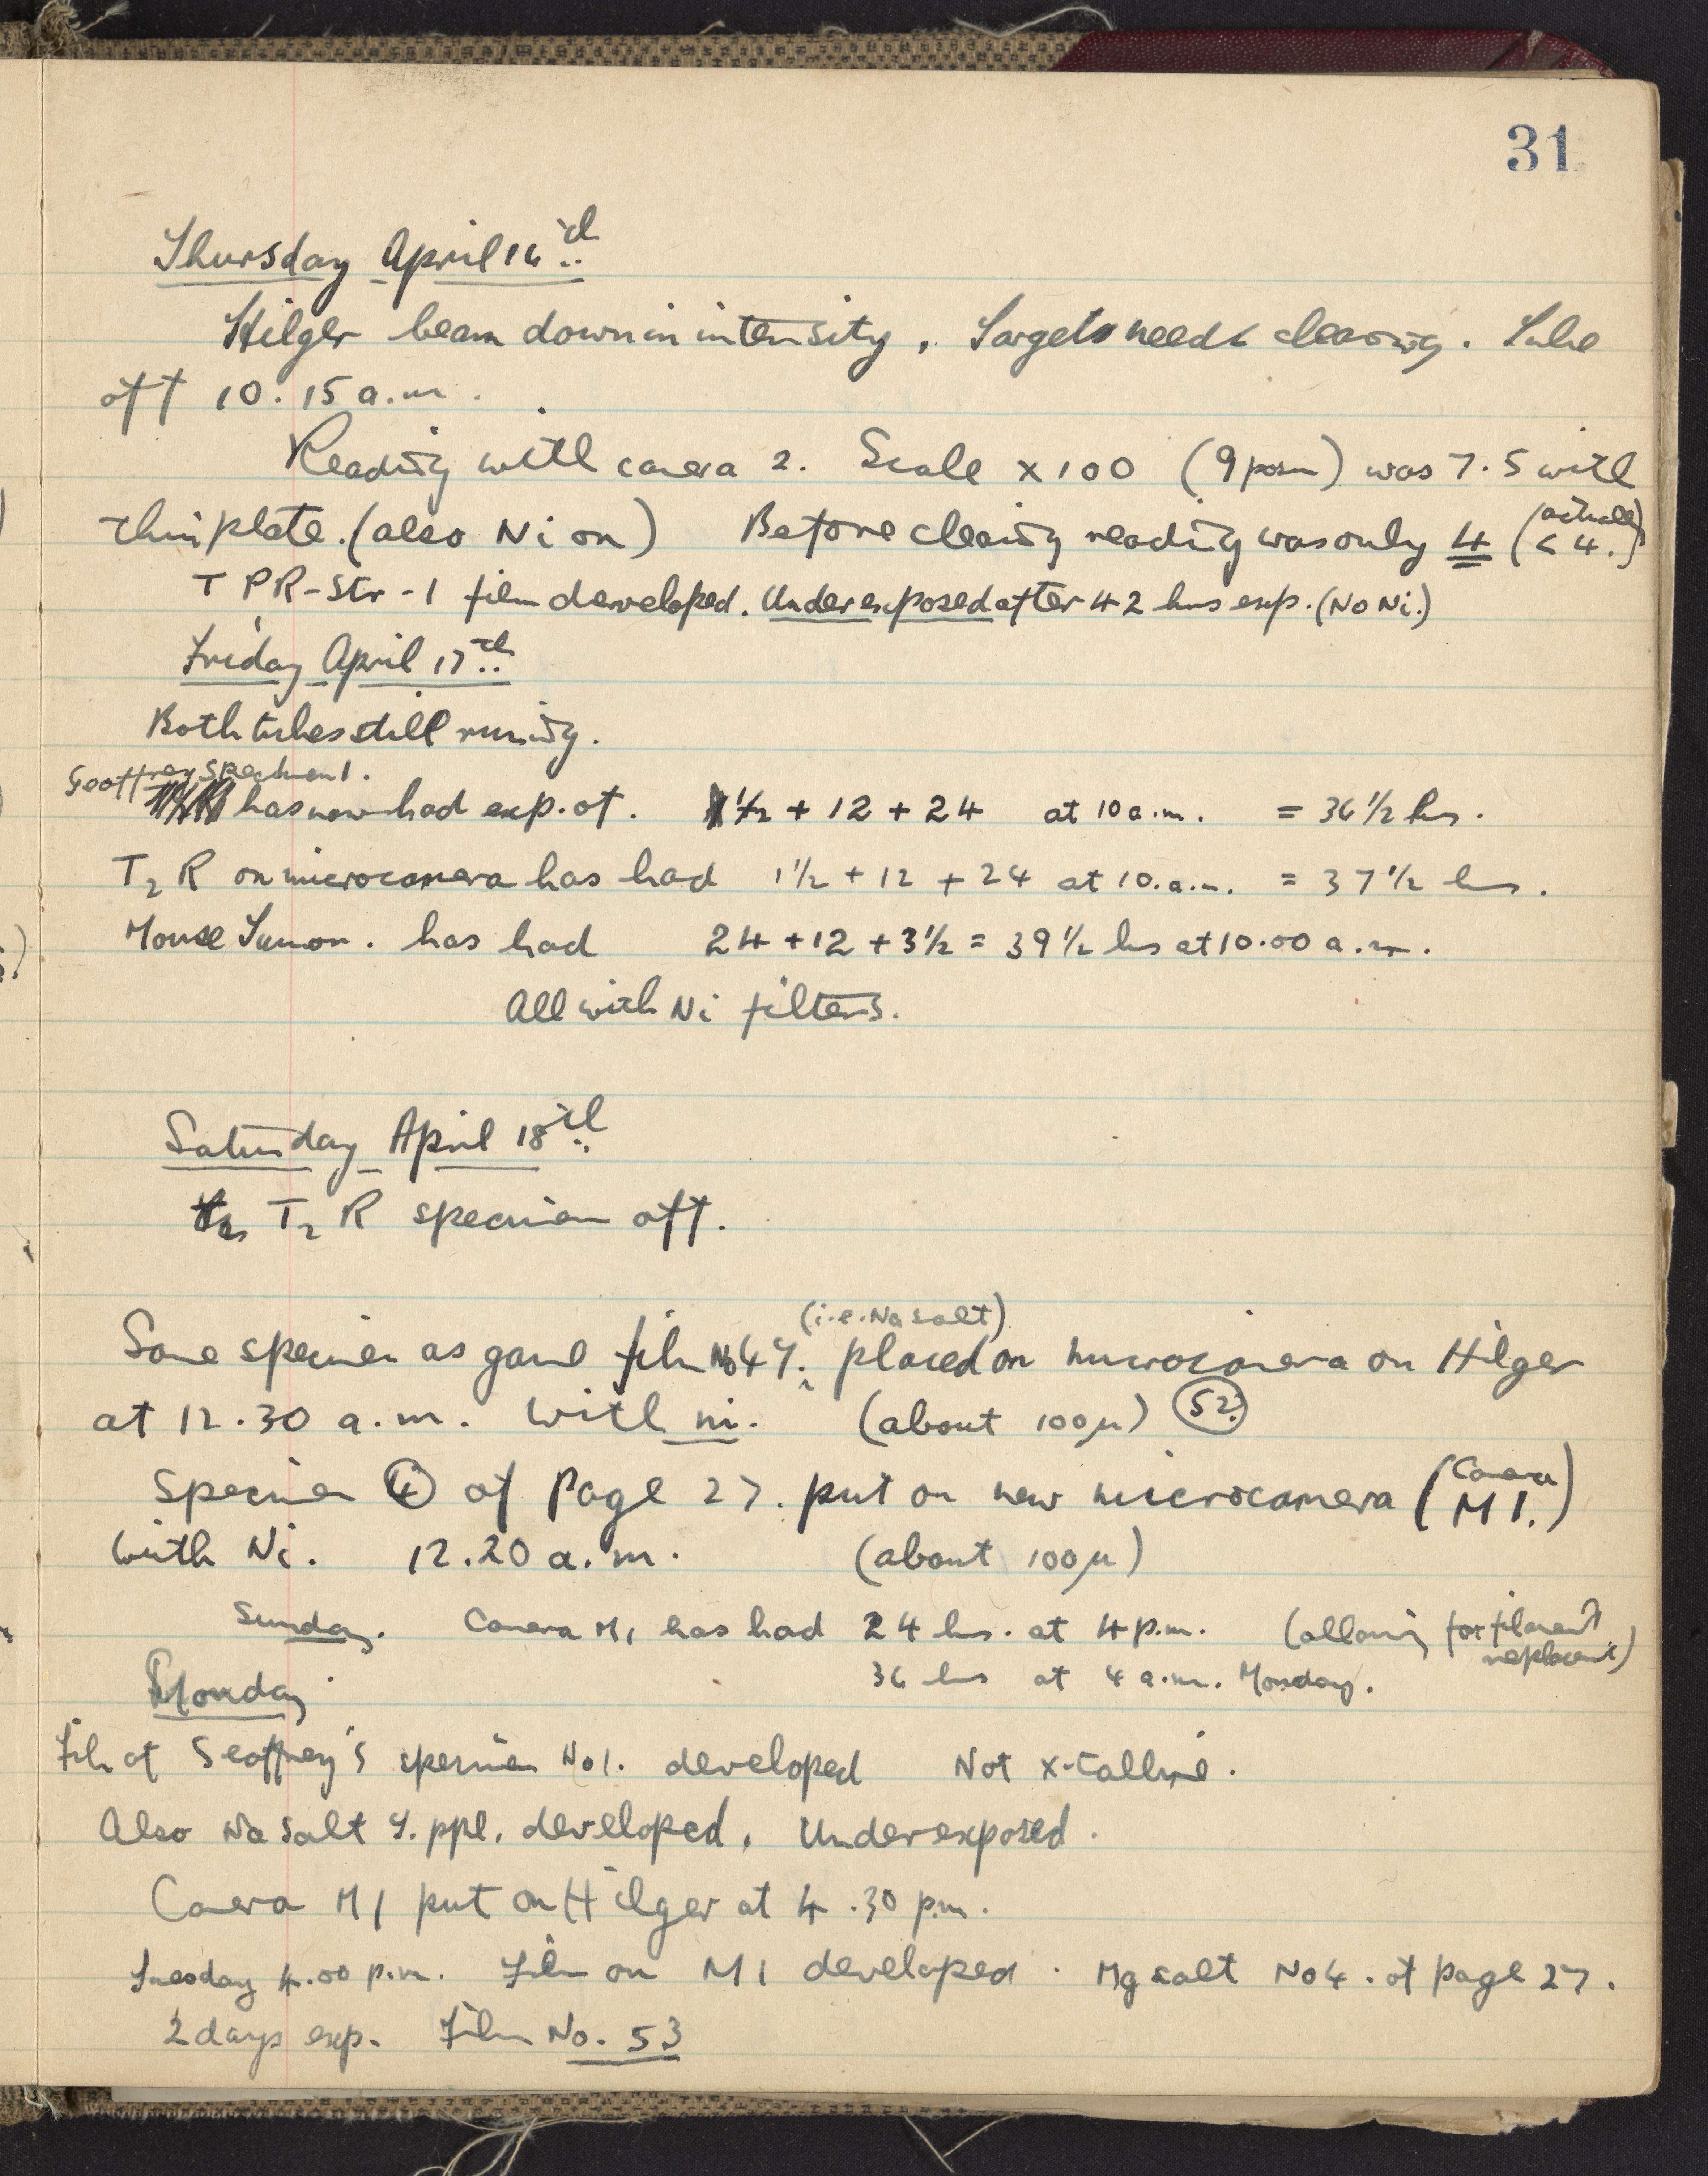 31
Thursday April 16th
Hilger beam down in intensity, Target needs cleaning. Tube
off 10.15 a.m.
Reading with camera 2. Scale x 100 (9 posn) was 7.5 with
thin plate. (also Ni on) Before cleaning reading was only 4 (actually < 4.)
T PR-Str-1 film developed. Underexposed after 42 hrs exp. (No Ni.)
Friday April 17th
Both tubes still running.
Geoffrey Specimen 1.
has now had exp. of. 1/2 + 12 + 24 at 10 a.m. = 36 1/2 hrs.
T2 R on microcamera has had 1 1/2 + 12 + 24 at 10.a.m. = 37 1/2 hrs.
Mouse Tumor. has had 24 + 12 + 3 1/2 = 39 1/2 hrs at 10.00 a.m.
All with Ni filters.
Saturday April 18th
T2 R specimen off.
(i.e. Na salt)
Same specimen as gave film No 49. placed on microcamera on Hilger
at 12.30 a.m. With Ni. (about 100μ) 52.
Specimen 4 of Page 27. put on new microcamera (Camera M 1.)
With Ni. 12.20 a.m. (about 100μ)
Sunday. Camera M1 has had 24 hrs. at 4 p.m. (allowing for filament replacement)
36 hrs at 4 a.m. Monday.
Monday
Film of Geoffrey's specimen No 1. developed Not x-talline.
Also Na Salt Y. ppt. developed. Underexposed.
Camera M1 put on Hilger at 4.30 p.m.
Tuesday 4.00 p.m. Film on M1 developed. Mg salt No 4. of page 27.
2 days exp. Film No. 53